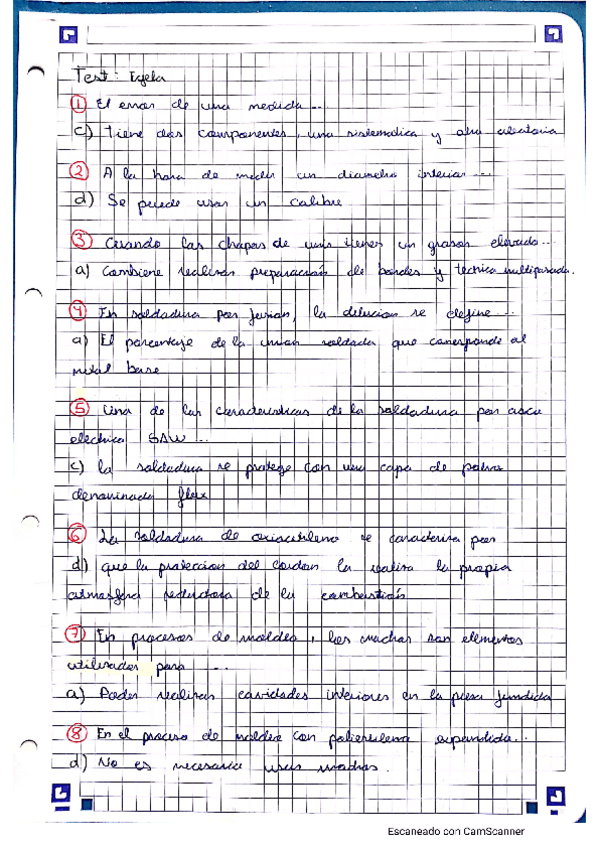 Test: Egela
① El error de una medida...
c) tiene dos componentes, una sistematica y otra aleatoria
② A la hora de medir un diametro interior...
d) Se puede usar un calibre
③ Cuando las chapas de unir tienen un grosor elevado...
a) Combiene realizar preparación de bordes y tecnica multipasada.
④ En soldadura por fusion, la dilucion se define...
a) El porcentaje de la union soldada que corresponde al
metal base
⑤ Una de las caracteristicas de la soldadura por arco
electrico SAW...
c) la soldadura se protege con una capa de polvo
denominada flux
⑥ La soldadura de oxiacetileno se caracteriza por
d) que la proteccion del cordon la realiza la propia
atmosfera reductora de la combustión
⑦ En procesos de moldeo, los machos son elementos
utilizados para ...
a) Poder realizar cavidades interiores en la pieza fundida
⑧ En el proceso de moldeo con poliestileno expandido...
d) No es necesario usar machos.
Escaneado con CamScanner